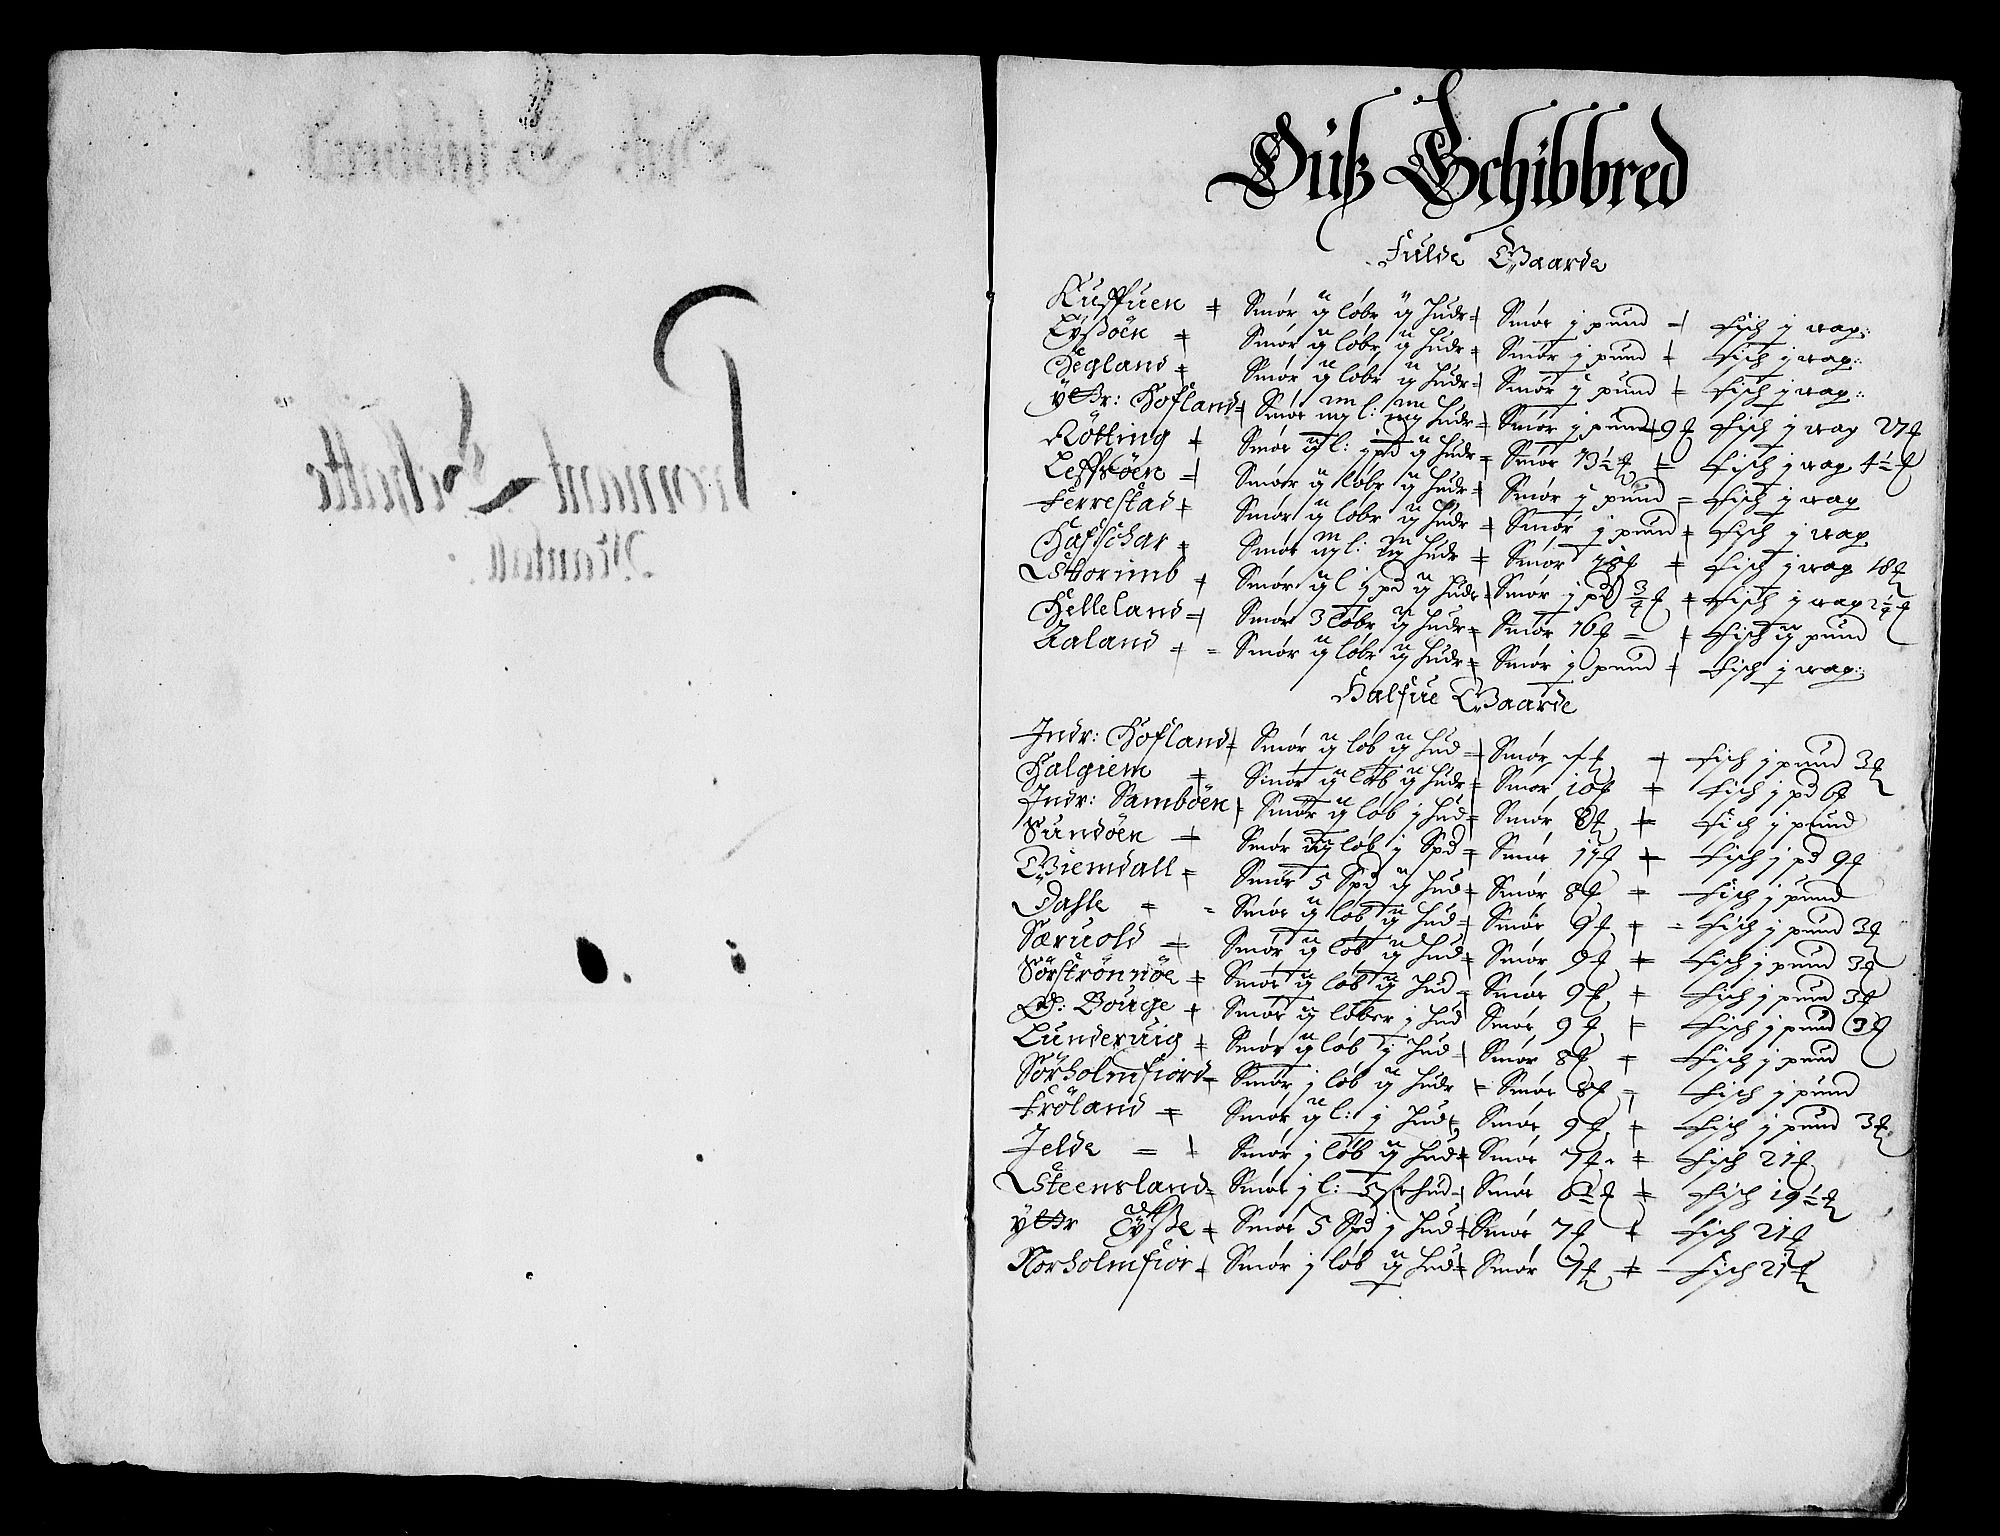 Ouß Schibbred
Fulde Gaarde
Kuffuen Smør ij løbr ij Hudr Smør j pund Fisch j wag:
Tÿßøen Smør ij løbr ij Hudr Smør j pund Fisch j wag:
Hegland Smør ij løbr ij Hudr Smør j pund Fisch j wag:
ÿttr: Hofland Smør iiij l: iiij Hudr Smør j pund 9 Fisch j wag 27
Røtting Smør ij l: j pd ij Hudr Smør 13½ Fisch j wag 4½
Leffrøen Smør ij løbr ij Hudr Smør j pund Fisch j wag
Ferrestad Smør ij løbr ij Hudr Smør j pund Fisch j wag
Hafschar Smør iij l: iij Hudr Smør 18 Fisch j wag 18
Storimb Smør ij l j pd ij Hudr Smør j pd ¾ Fisch j wag 2¼
Helleland Smør 3 løbr ij Hudr Smør 16 Fisch ij pund
Aaland Smør ij løbr ij Hudr Smør j pund Fisch j wag:
Halfue Gaarde
Indr: Hofland Smør ij løb ij Hud Smør Fisch j pund 3
Halgiem Smør ij løb ij Hudr Smør 10 Fisch j pd 6
Indr: Sambøen Smør ij løb j Hud Smør 8 Fisch j pund
Sundøen Smør ij løb j Spd Smør 11 Fisch j pd 9
Giemdall Smør 5 Spd ij Hud Smør 8 Fisch j pund
Dahle Smør ij løb ij Hud Smør 9 Fisch j pund 3
Særuold Smør ij løb ij Hud Smør 9 Fisch j pund 3
Sørstrønnøe Smør ij løb ij Hud Smør 9 Fisch j pund 3
Bouge Smør ij løber j Hud Smør 9 Fisch j pund 3
Lunderuig Smør ij løb j Hud Smør 8 Fisch j pund
Sørholmfiord Smør j løb ij Hudr Smør 8 Fisch j pund
Frøland Smør ij l: j Hud Smør 9 Fisch j pund 3
Jelde Smør j løb ij Hud Smør 7 Fisch 21
Steensland Smør j l: Hud Smør 6½ Fisch 19½
ÿttr Tÿße Smør 5 Spd j Hud Smør 7 Fisch 21
Norholmfior Smør j løb ij Hud Smør 7 Fisch 21